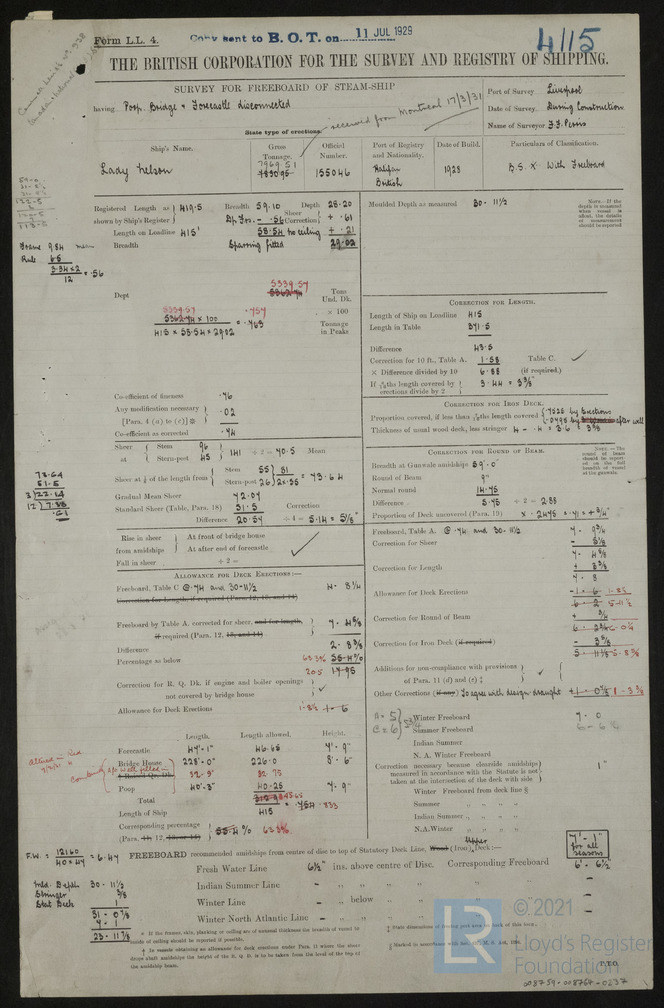 Form L.L. 4.
Copy sent to B.O.T. on 11 JUL 1929
4/15
THE BRITISH CORPORATION FOR THE SURVEY AND REGISTRY OF SHIPPING.
SURVEY FOR FREEBOARD OF STEAM-SHIP
having Poop, Bridge & Forecastle disconnected
received from Montreal 17/3/31
State type of erections.
Port of Survey Liverpool
Date of Survey During Construction
Name of Surveyor
Ship's Name. Gross Tonnage. Official Number. Port of Registry and Nationality. Date of Build. Particulars of Classification.
Lady Nelson 7969.51 155046 Halifax British 1928 B.S.X With Freeboard
Registered Length as shown by Ship's Register 419.5 Breadth 59.10 Depth 28.20
Dp. Frs. - .56 Sheer Correction + .61
Length on Loadline 415' 58.54 to ceiling + .21
Breadth Sparring fitted 29.02
Moulded Depth as measured 30 - 11½
NOTE.—If the depth is measured when vessel is afloat, the details of measurement should be reported
Frame 9.84
Rule 6.5
3.34 x 2
12 = .56
5339.57
Dept 5362.74 Tons Und. Dk.
5339.57 .757
5362.74 x 100 = .763 x 100
415 x 58.54 x 29.02 Tonnage in Peaks
CORRECTION FOR LENGTH.
Length of Ship on Loadline 415
Length in Table 371.5
Difference 43.5
Correction for 10 ft., Table A. 1.58 Table C.
× Difference divided by 10 6.88 (if required.)
If 6/10ths length covered by erections divide by 2 3.44 = 3⅜
Co-efficient of fineness .76
Any modification necessary [Para. 4 (a) to (e)] .02
Co-efficient as corrected .74
CORRECTION FOR IRON DECK.
Proportion covered, if less than 7/10ths length covered .7525 by Erections
Thickness of usual wood deck, less stringer 4 - .4 = 3.6 = 3⅝
Sheer at Stem 96 Stern-post 45 141 ÷ 2 = 70.5 Mean
Sheer at ⅛ of the length from Stem 55 Stern-post 26 81 = 73.64
Gradual Mean Sheer 72.07
Standard Sheer (Table, Para. 18) 51.5 Correction
Difference 20.57 ÷ 4 = 5.14 = 5⅛"
73.64
51.5
3)22.14
12)7.38
.61
CORRECTION FOR ROUND OF BEAM.
Breadth at Gunwale amidships 59'.0"
Round of Beam 9"
Normal round 14.75
Difference 5.75 ÷ 2 = 2.88
Proportion of Deck uncovered (Para. 19) × .2475 × .71 = + ¾"
NOTE.—The round of beam should be reported on the full breadth of vessel at the gunwale.
Rise in sheer from amidships At front of bridge house
At after end of forecastle
Fall in sheer ÷ 2 =
ALLOWANCE FOR DECK ERECTIONS:—
Freeboard, Table C @ .74 and 30-11½ 4 - 8¼
Correction for Length, if required (Para. 12, 13, and 14)
Freeboard by Table A. corrected for sheer, and for length, if required (Para. 12, 13, and 14) 7 - 4⅝
Difference 2. 8⅜
Percentage as below 63.3% 55.4%
20.5 17.95
Correction for R. Q. Dk. if engine and boiler openings not covered by bridge house
Allowance for Deck Erections 1-8½ 1 - 6
Freeboard, Table A. @ .74 and 30-11½ 7 - 9¾
Correction for Sheer - 5⅛
7 - 4⅝
Correction for Length + 3⅜
7 - 8
Allowance for Deck Erections -1 - 6 1-8½
6 - 2 5-11½
Correction for Round of Beam + ¾
6 - 2¾ 6-0¼
Correction for Iron Deck (if required) - 3⅝
5 - 11⅛ 5-8⅝
Additions for non-compliance with provisions of Para. 11 (d) and (e)
Other Corrections (if any) To agree with design draught
Length. Length allowed. Height.
Forecastle 47'-1" 46.65 7'-9"
Bridge House 228'-0" 226.0 8'-6"
R. Q. Dk. 32'-9" 32.75
Poop 40'-3" 40.25 7'-9"
Total
Length of Ship 415 = .754 .833
Corresponding percentage 55.4% 63.3%
(Para. 11, 12, 13, or 14)
altered in Red
Winter Freeboard 7 - 0
Summer Freeboard 6 - 6
Indian Summer
N. A. Winter Freeboard
Correction necessary because clearside amidships measured in accordance with the Statute is not taken at the intersection of the deck with side 1"
Winter Freeboard from deck line
Summer " " " "
Indian Summer " " " "
N.A.Winter " " " "
F.W. = 12160
40 x 47 = 6.47
Mld. Depth 30 - 11½
Stringer ⅝
Stat Deck 1
31 - 0⅞
7 - 1
23 - 11⅞
FREEBOARD recommended amidships from centre of disc to top of Statutory Deck Line, Wood (Iron) Upper Deck:— 7' - 1" for all seasons
Fresh Water Line 6½" ins. above Centre of Disc. Corresponding Freeboard 6' - 6½"
Indian Summer Line - " " " "
Winter Line - " below " "
Winter North Atlantic Line - " " " "
* If the frames, skin, planking or ceiling are of unusual thickness the breadth of vessel to inside of ceiling should be reported if possible.
† In vessels obtaining an allowance for deck erections under Para. 11 where the sheer drops abaft amidships the height of the R. Q. D. is to be taken from the level of the top of the amidship beam.
P.T.O.
LR
© 2021
Lloyd's Register Foundation
008759-008764-0237